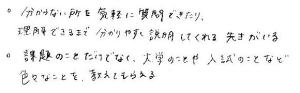 ○ 分からない所を気軽に質問できたり、
理解できるまで分かりやすく説明してくれる先生がいる
○ 課題のことだけでなく、大学のことや入試のことなど
色々なことを、教えてもらえる